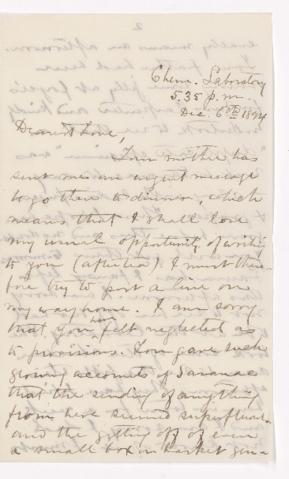 Chem. Laboratory
5.35 p.m.
Dec. 6th 1894
Dearest Love,
Your mother has
sent me an urgent message
to go there to dinner, which
means that I shall lose
my usual opportunity of writing
to you (after tea). I must there-
fore try to post a line on
my way home. I am sorry
that you felt neglected as
to provisions. You gave such
glowing accounts of Saranac
that the sending of anything
from here seemed superfluous
and the getting off of even
a small box or basket